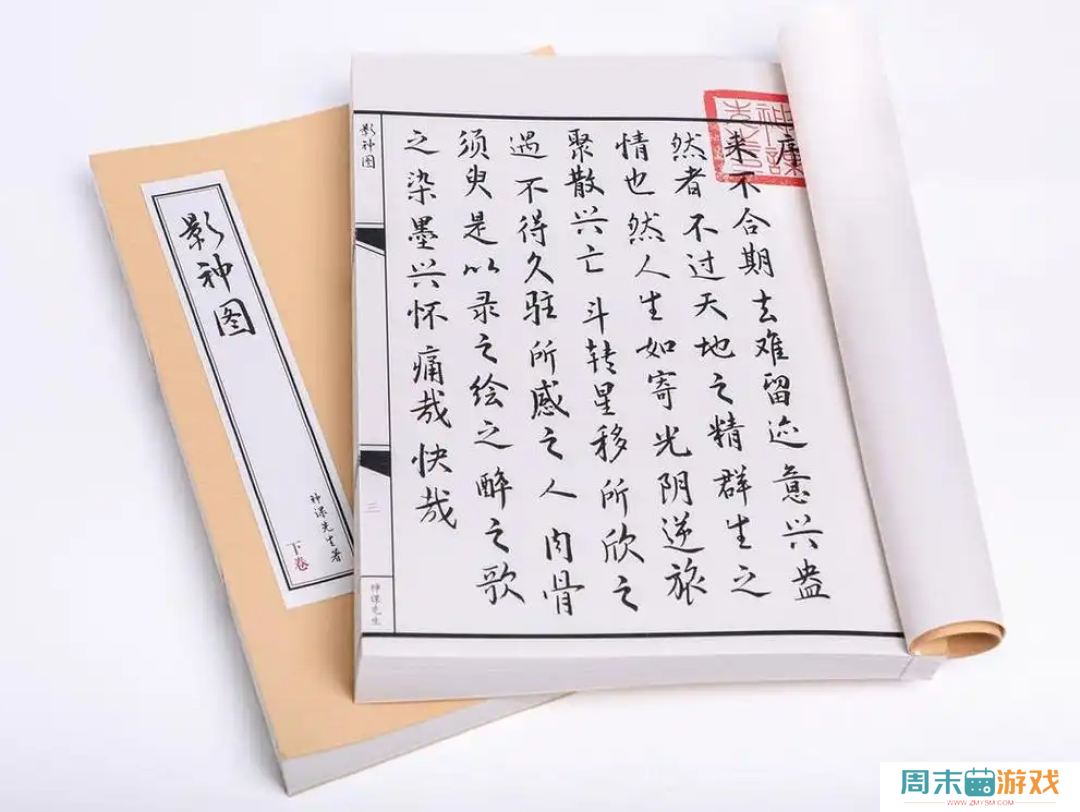 来不合期去难留迹意兴盎
然者不过天地之精群生之
情也然人生如寄光阴逆旅
聚散兴亡斗转星移所欣之
遇不得久驻所感之人肉骨
须臾是以录之绘之醉之歌
之染墨兴怀痛哉快哉
影神图
三
神课先生
影神图
神课先生著
下卷
周末游戏
WWW.ZMYSM.COM